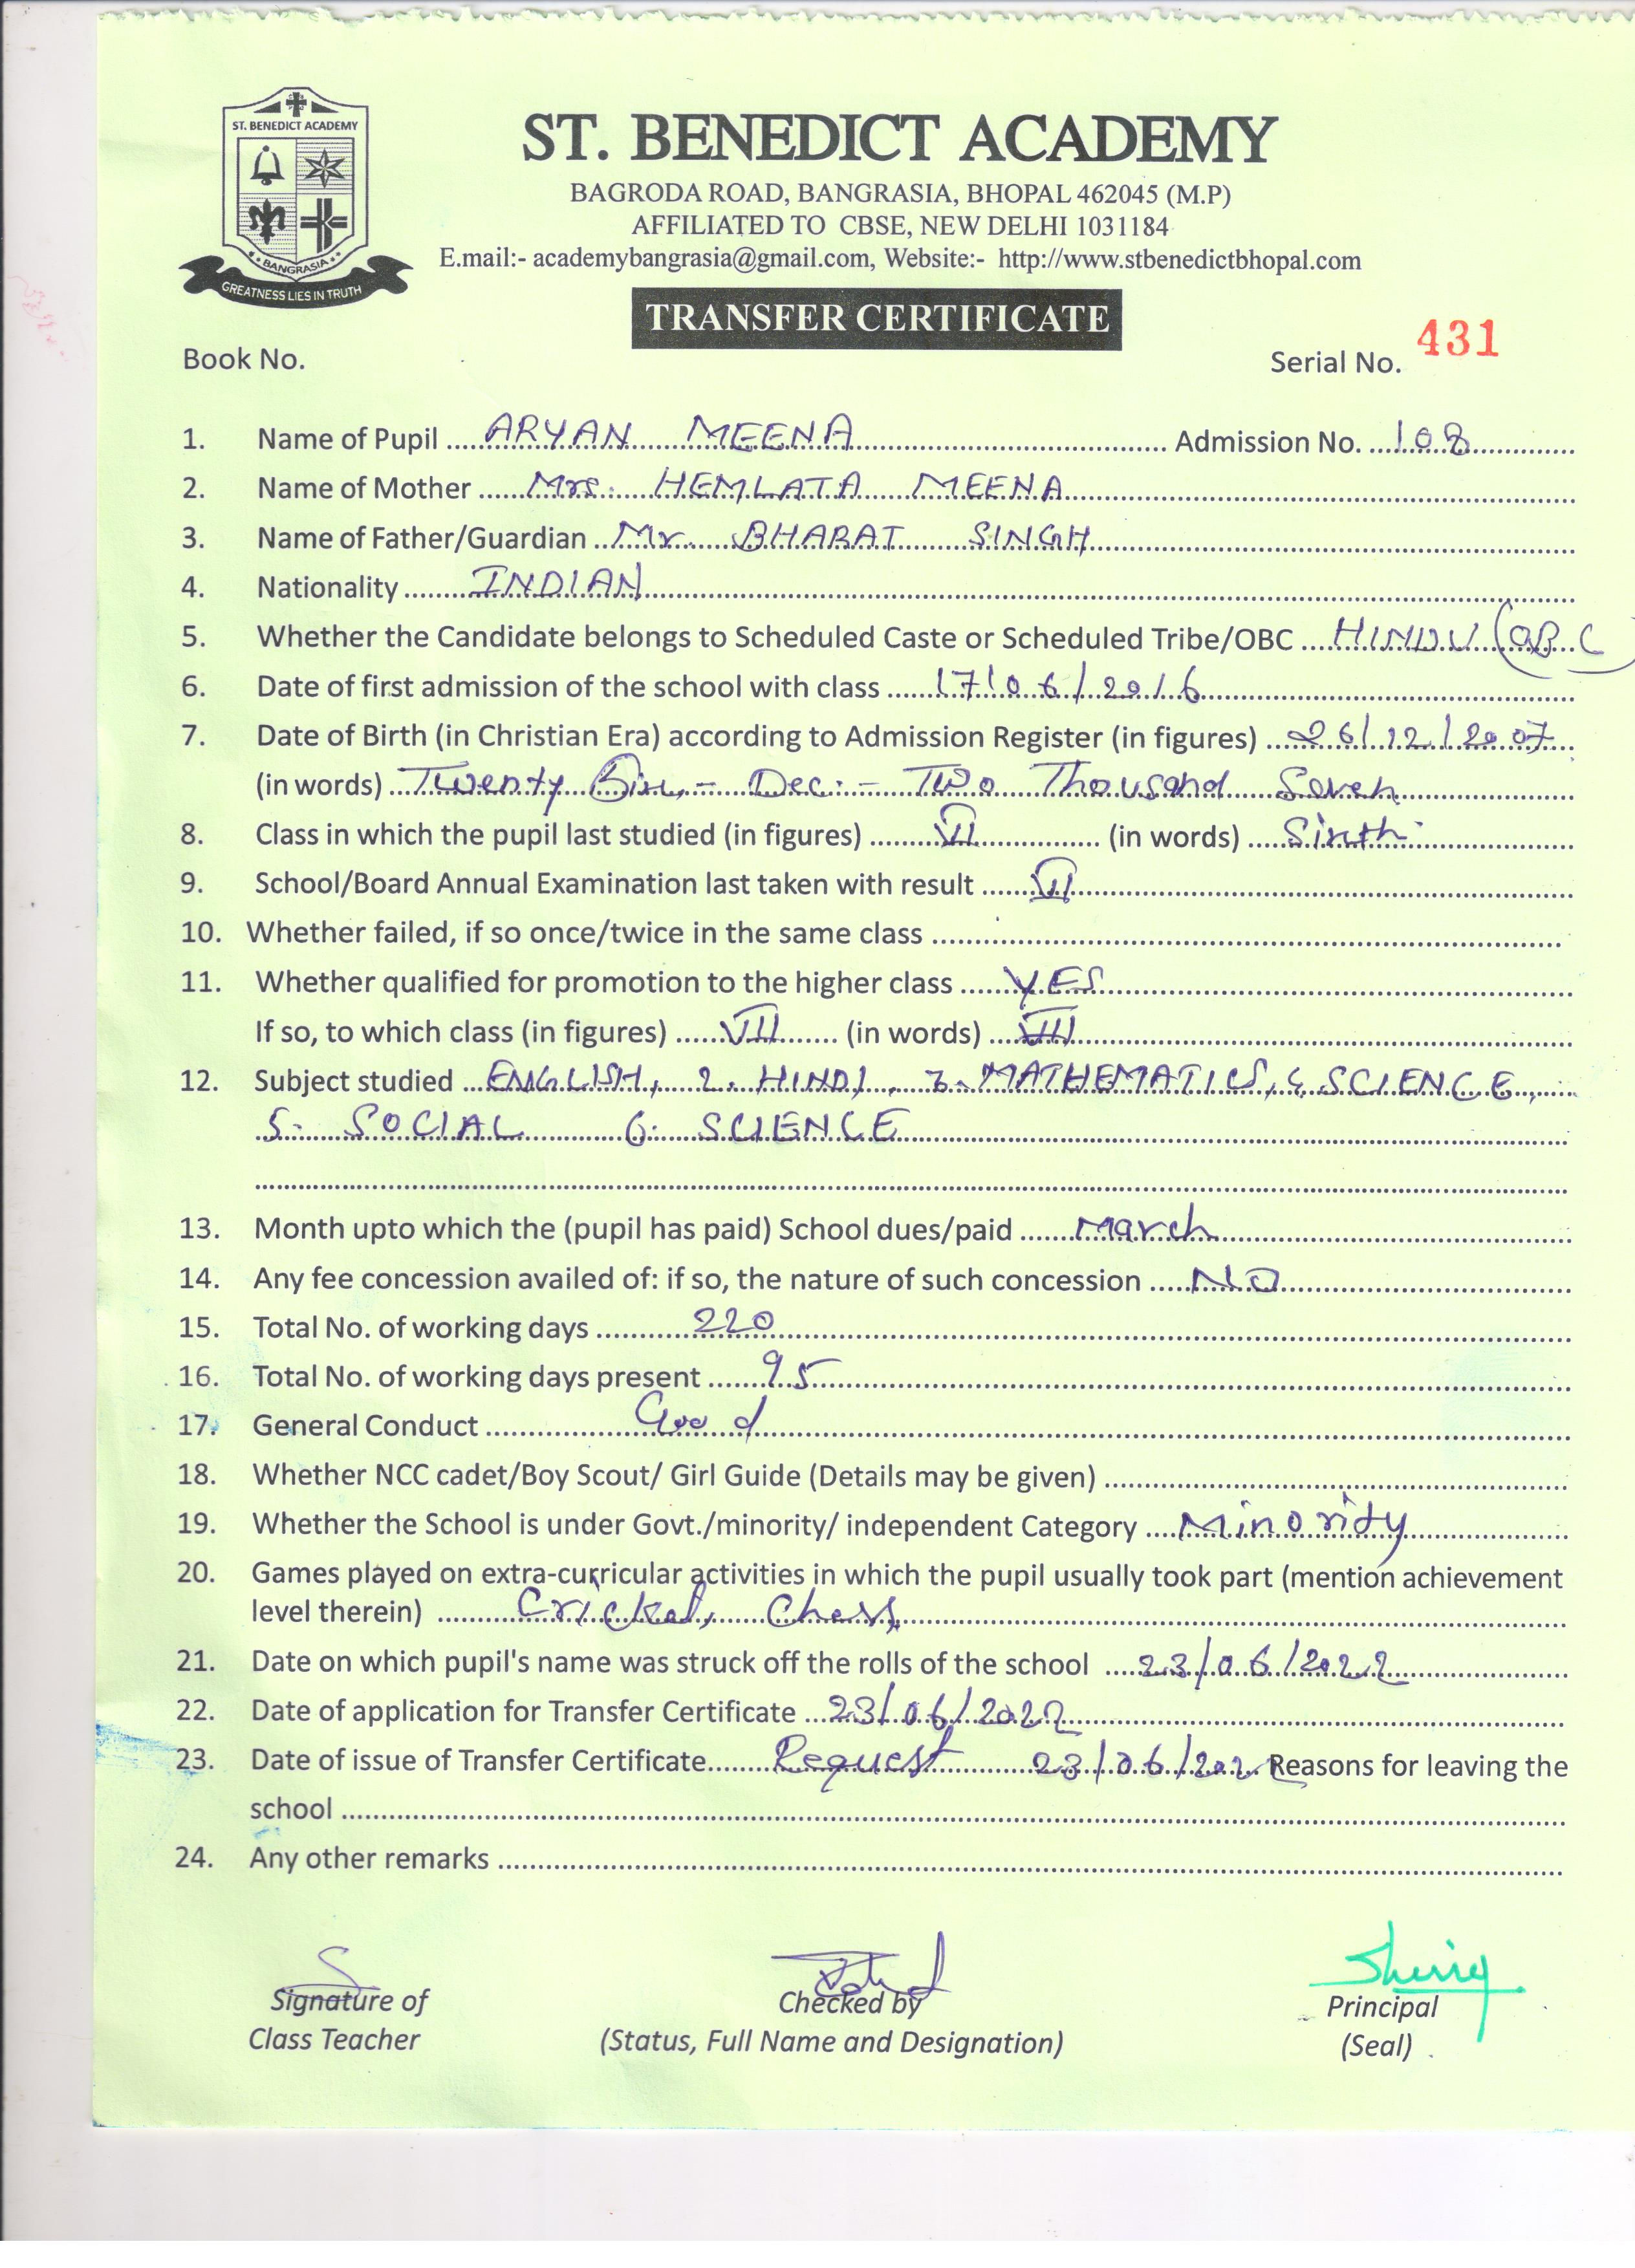 ST. BENEDICT ACADEMY
BANGRASIA
GREATNESS LIES IN TRUTH
ST. BENEDICT ACADEMY
BAGRODA ROAD, BANGRASIA, BHOPAL 462045 (M.P)
AFFILIATED TO CBSE, NEW DELHI 1031184
E.mail:- academybangrasia@gmail.com, Website:- http://www.stbenedictbhopal.com
TRANSFER CERTIFICATE
Book No. Serial No. 431
1. Name of Pupil ARYAN MEENA Admission No. 108
2. Name of Mother Mrs. HEMLATA MEENA
3. Name of Father/Guardian Mr. BHARAT SINGH
4. Nationality INDIAN
5. Whether the Candidate belongs to Scheduled Caste or Scheduled Tribe/OBC HINDU (OBC
6. Date of first admission of the school with class 17/06/2016
7. Date of Birth (in Christian Era) according to Admission Register (in figures) 26/12/2007
(in words) Twenty Six - Dec - Two Thousand Seven
8. Class in which the pupil last studied (in figures) VI (in words) Sixth
9. School/Board Annual Examination last taken with result
10. Whether failed, if so once/twice in the same class
11. Whether qualified for promotion to the higher class YES
If so, to which class (in figures) VII (in words)
12. Subject studied ENGLISH, 2. HINDI, 3. MATHEMATICS, 4 SCIENCE,
5. SOCIAL 6. SCIENCE
13. Month upto which the (pupil has paid) School dues/paid March
14. Any fee concession availed of: if so, the nature of such concession NO
15. Total No. of working days 220
16. Total No. of working days present 95
17. General Conduct Good
18. Whether NCC cadet/Boy Scout/ Girl Guide (Details may be given)
19. Whether the School is under Govt./minority/ independent Category Minority
20. Games played on extra-curricular activities in which the pupil usually took part (mention achievement
level therein) Cricket, Chess
21. Date on which pupil's name was struck off the rolls of the school 23/06/2022
22. Date of application for Transfer Certificate 23/06/2022
23. Date of issue of Transfer Certificate Request 23/06/2022 Reasons for leaving the
school
24. Any other remarks
Signature of Checked by Principal
Class Teacher (Status, Full Name and Designation) (Seal)